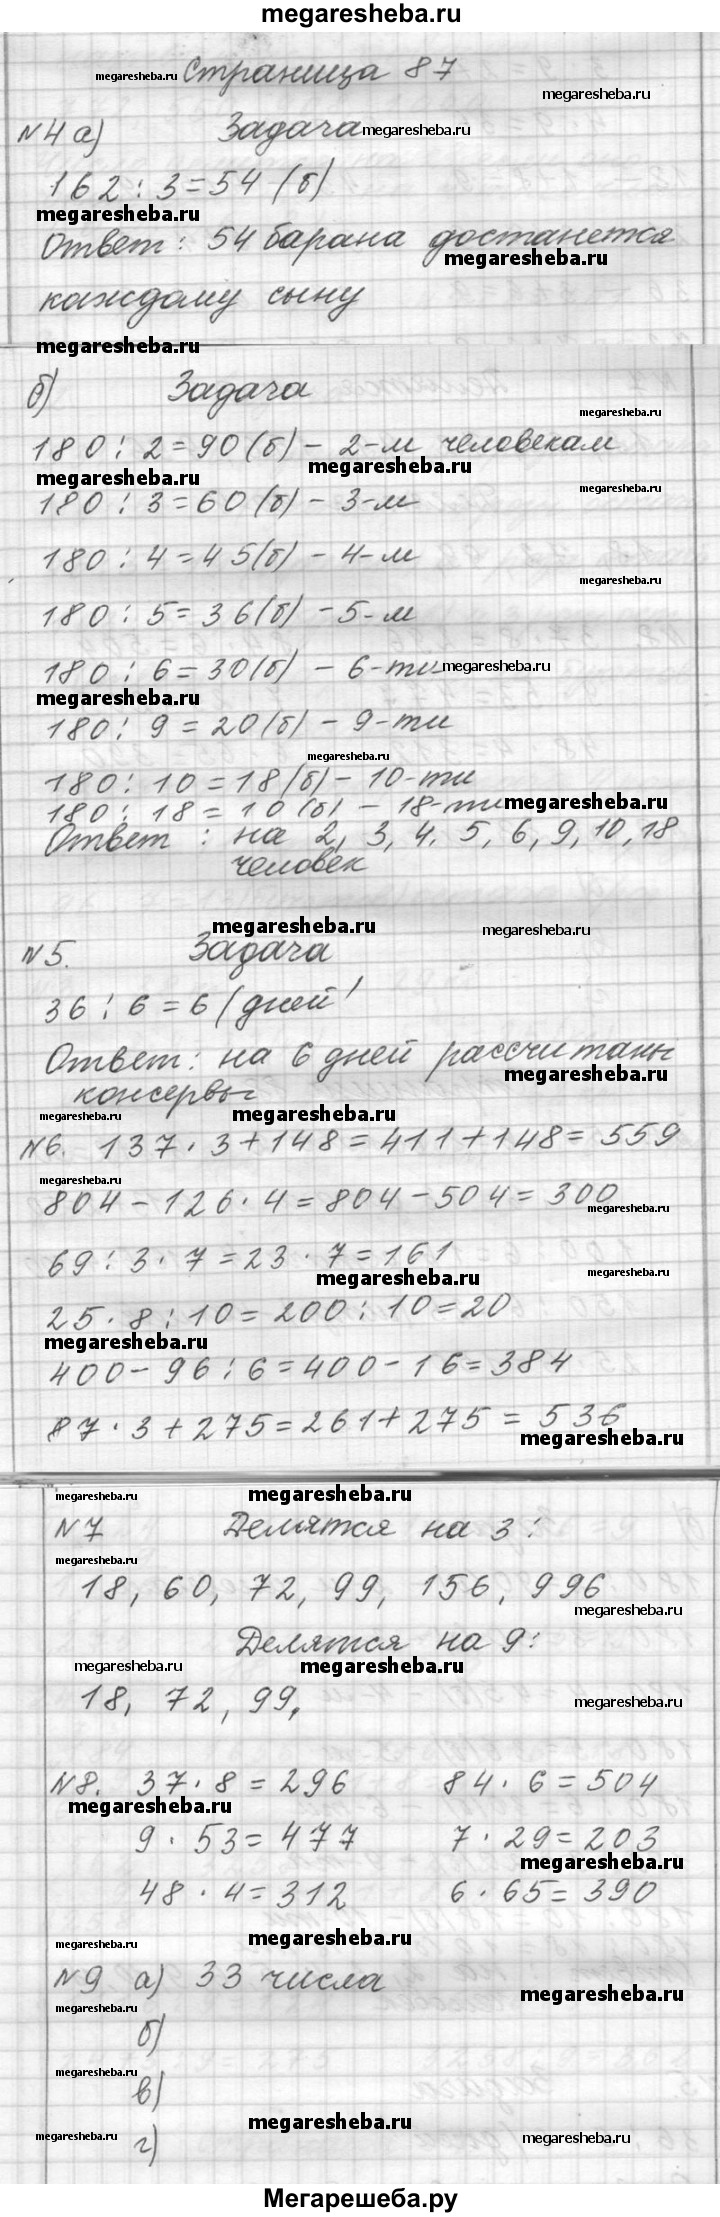 megaresheba.ru
megaresheba.ru Страница 87
megaresheba.ru
№4 а) Задача megaresheba.ru
162 : 3 = 54 (б)
megaresheba.ru
Ответ: 54 барана достанется
megaresheba.ru
каждому сыну
megaresheba.ru
б) Задача
megaresheba.ru
180 : 2 = 90 (б) - 2-м человекам
megaresheba.ru megaresheba.ru
180 : 3 = 60 (б) - 3-м megaresheba.ru
180 : 4 = 45 (б) - 4-м
megaresheba.ru
180 : 5 = 36 (б) - 5-м
180 : 6 = 30 (б) - 6-ти megaresheba.ru
megaresheba.ru
180 : 9 = 20 (б) - 9-ти
megaresheba.ru
180 : 10 = 18 (б) - 10-ти
180 : 18 = 10 (б) - 18-ти megaresheba.ru
Ответ : на 2, 3, 4. 5, 6, 9, 10, 18
человек
megaresheba.ru megaresheba.ru
№5. Задача
36 : 6 = 6 (дней)
Ответ: на 6 дней рассчитаны
megaresheba.ru
консервы
megaresheba.ru megaresheba.ru
№6. 137 · 3 + 148 = 411 + 148 = 559
megaresheba.ru
804 - 126 · 4 = 804 - 504 = 300
megaresheba.ru
69 : 3 · 7 = 23 · 7 = 161
megaresheba.ru megaresheba.ru
25 · 8 : 10 = 200 : 10 = 20
megaresheba.ru
400 - 96 : 6 = 400 - 16 = 384
87 · 3 + 275 = 261 + 275 = 536
megaresheba.ru
megaresheba.ru megaresheba.ru
№7 Делятся на 3:
megaresheba.ru
18, 60, 72, 99, 156, 996
megaresheba.ru
Делятся на 9:
megaresheba.ru megaresheba.ru
18, 72, 99, megaresheba.ru
№8. 37 · 8 = 296 84 · 6 = 504
megaresheba.ru
9 · 53 = 477 7 · 29 = 203
megaresheba.ru
48 · 4 = 312 6 · 65 = 390
megaresheba.ru megaresheba.ru
№9 а) 33 числа
megaresheba.ru
megaresheba.ru
б)
megaresheba.ru
в)
megaresheba.ru
megaresheba.ru megaresheba.ru
г)
Мегарешеба.ру